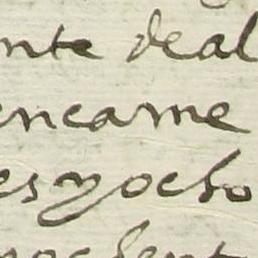 nte de al
encarne
es y ocho